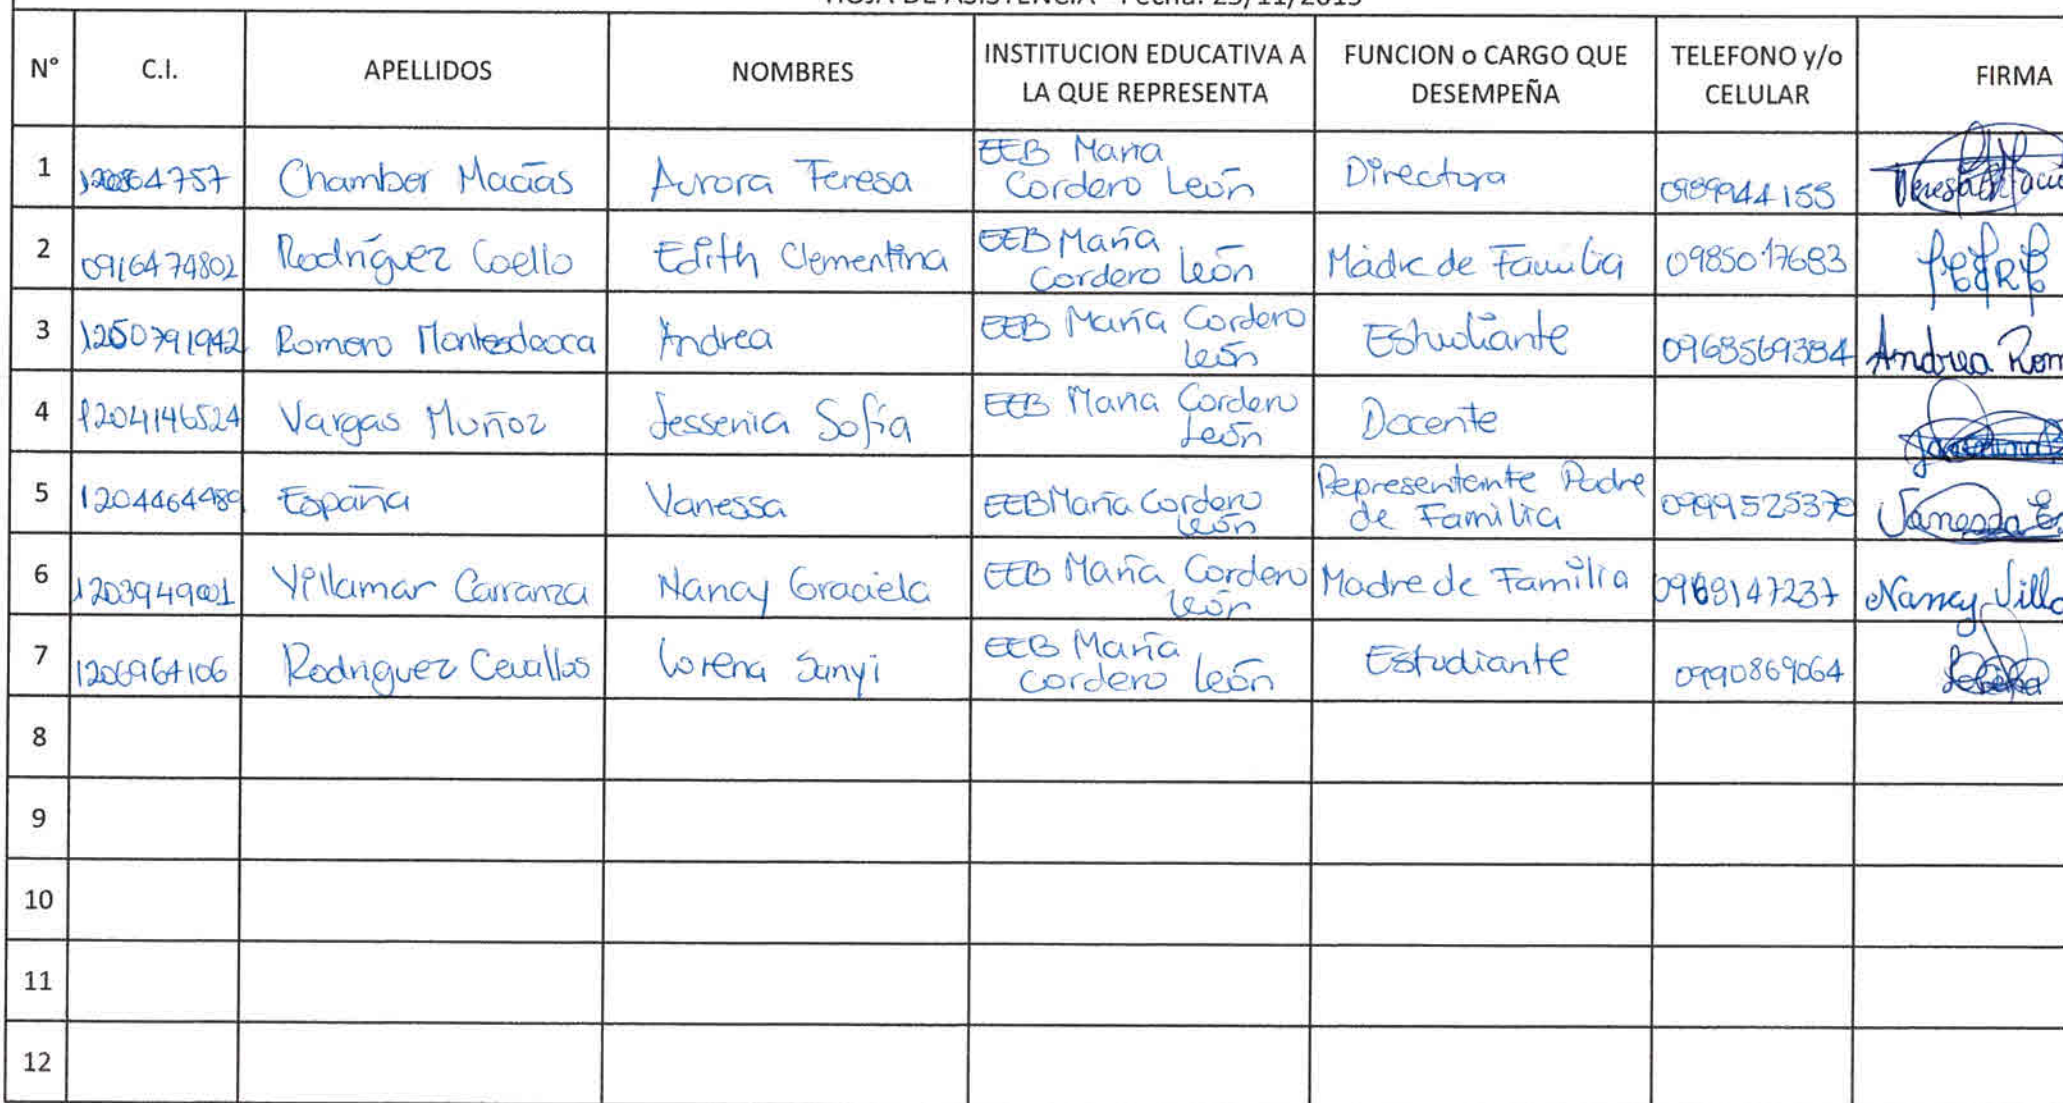 HOJA DE ASISTENCIA - Fecha: 25/11/2015
N° C.I. APELLIDOS NOMBRES INSTITUCION EDUCATIVA A LA QUE REPRESENTA FUNCION o CARGO QUE DESEMPEÑA TELEFONO y/o CELULAR FIRMA
1 Chamber Macías Aurora Teresa EEB María Cordero León Directora 0989944155
2 0916474802 Rodríguez Coello Edith Clementina EEB María Cordero León Madre de Familia 0985017683
3 1250791942 Romero Montesdeoca Andrea EEB María Cordero León Estudiante 0968569384 Andrea Rom
4 1204146524 Vargas Muñoz Jessenia Sofía EEB María Cordero León Docente
5 1204464489 España Vanessa EEB María Cordero León Representante Padre de Familia 0999525370 Vanessa Es
6 1203949001 Villamar Carranza Nancy Graciela EEB María Cordero León Madre de Familia 0968147237 Nancy Villa
7 1206964106 Rodriguez Cevallos Lorena Sanyi EEB María Cordero León Estudiante 0990869064
8
9
10
11
12